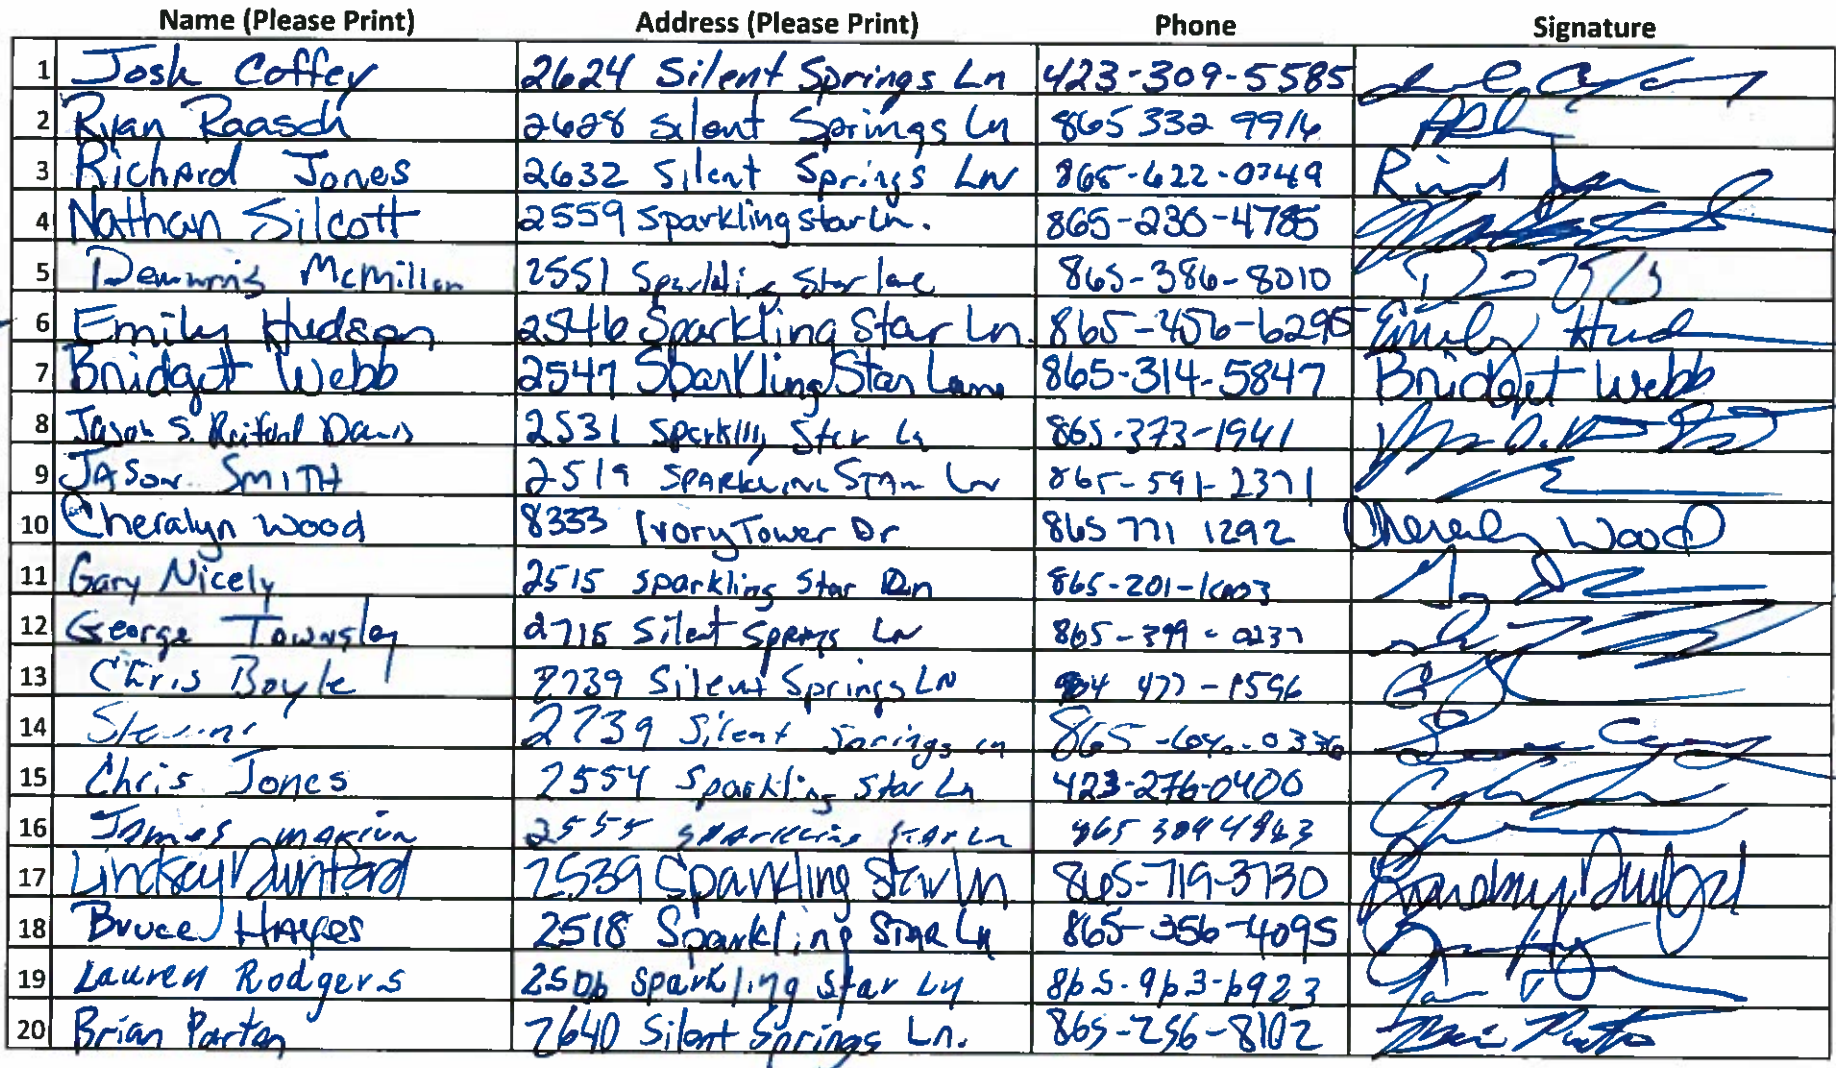 Name (Please Print) Address (Please Print) Phone Signature
1 Josh Coffey 2624 Silent Springs Ln 423-309-5585
2 Ryan Raasch 2628 Silent Springs Ln 865 332 9916
3 Richard Jones 2632 Silent Springs LN 865-622-0749
4 Nathan Silcott 2559 Sparkling Star Ln. 865-230-4785
5 McMillan 2551 Sparkling Star lane 865-386-8010
6 Emily Hudson 2546 Sparkling Star Ln. 865-456-6295 Emily Hud
7 Bridgett Webb 2547 Sparkling Star Lane 865-314-5847 Bridget Webb
8 Jason S. Davis 2531 Sparkling Star Ln 865-373-1941
9 JASON SMITH 2519 SPARKLING STAR LN 865-591-2371
10 Cheralyn Wood 8333 Ivory Tower Dr 865 771 1292 Cheralyn Wood
11 Gary Nicely 2515 Sparkling Star 865-201-
12 George Townsley 2715 Silent Springs LN 865-399-0237
13 Chris Boyle 2739 Silent Springs LN 477-1596
14 2739 Silent Springs Ln 865
15 Chris Jones 2554 Sparkling Star Ln 423-276-0400
16 James Marion 2555 Sparkling STAR Ln 865
17 Lindsey Dunford 2539 Sparkling Star Ln 865-719-3730 Lindsey Dunford
18 Bruce Hayes 2518 Sparkling Star Ln 865-356-4095
19 Lauren Rodgers 2506 Sparkling Star Ln 865-963-6923
20 Brian Parton 2640 Silent Springs Ln. 865-256-8102